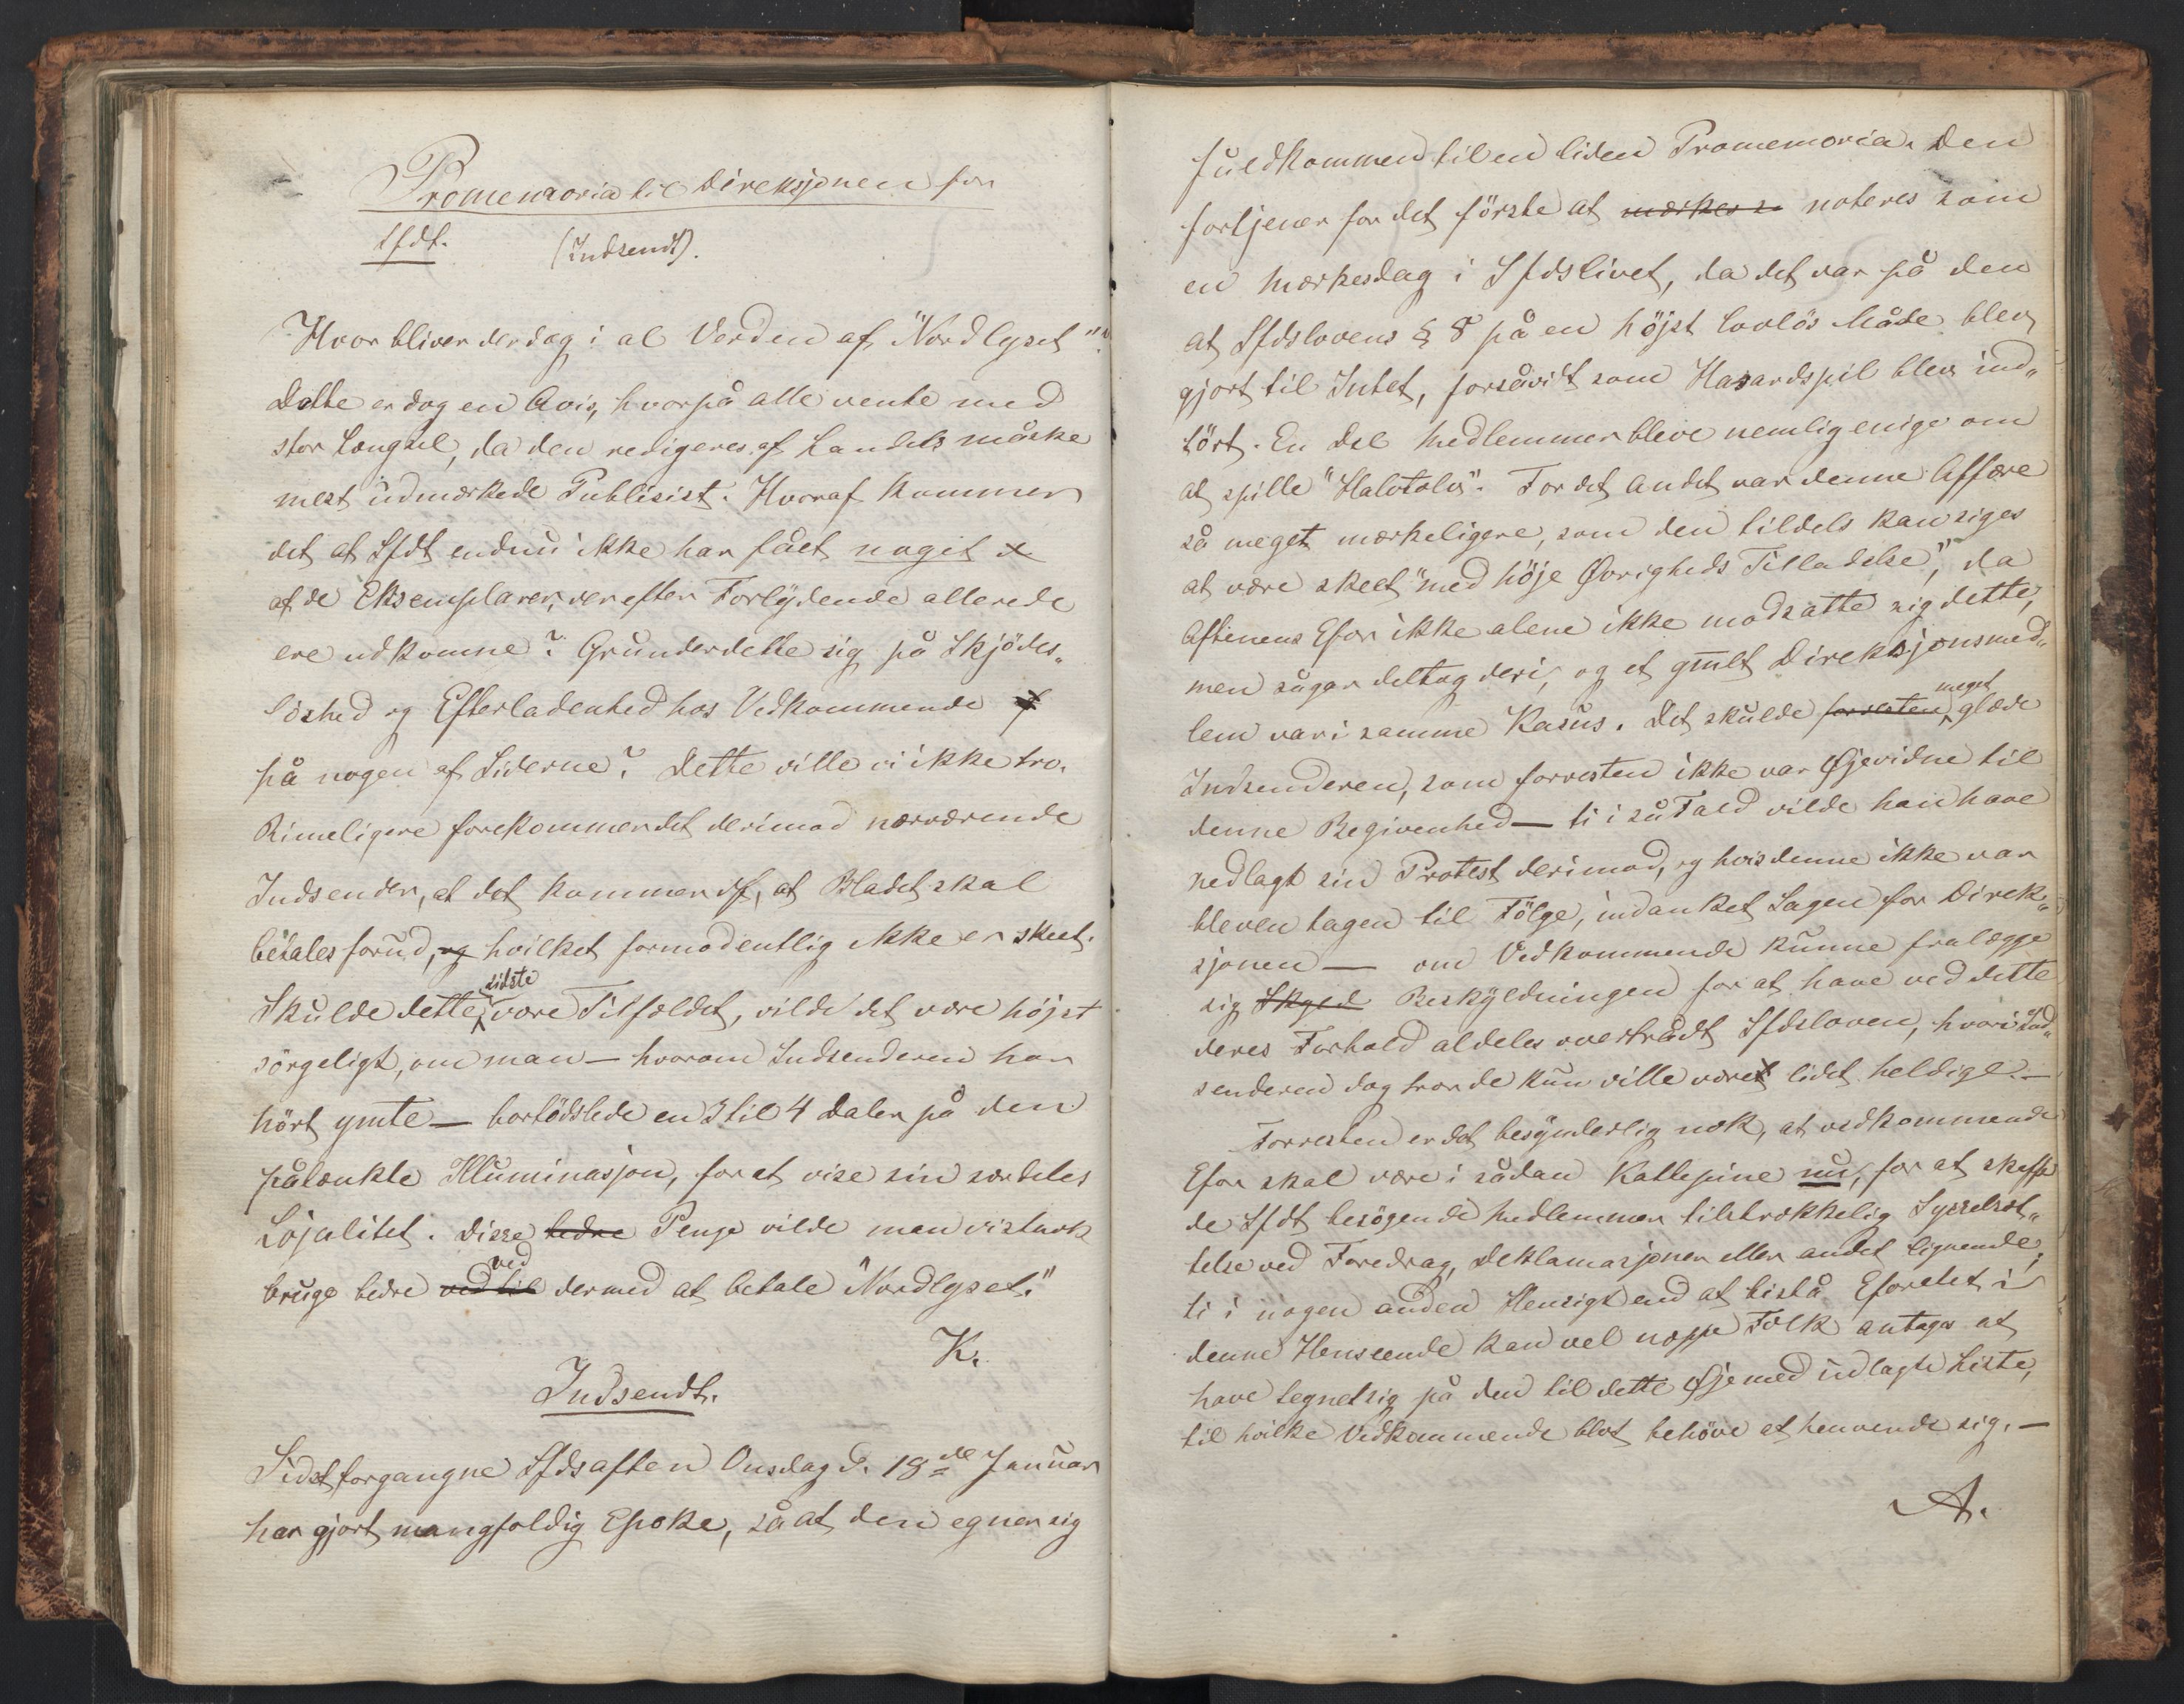 Promemoria til Direksjonen for
Sfdt.
(Indsendt).
Hvor bliver der dog i al Verden af "Nordlyset"?
Dette er dog en Avis, hvorpå alle vente med
stor Længsel, da den redigeres af Landets måske
mest udmærkede Publisist. Hvoraf kommer
det at Sfdt endnu ikke har fået noget
af de Eksemplarer, der efter Forlydende allerede
ere udkomne? Grunder dette sig på Skjødes„
løshed og Efterladenhed hos Vedkommende
på nogen af Siderne? Dette ville vi ikke tro.
Rimeligere forekommer det derimod nærværende
Indsender, at det kommer af, at Bladet skal
betales forud, og hvilket formodentlig ikke er skeet.
Skulde dette sidste være Tilfældet, vilde det være højst
sørgeligt, om man — hvorom Indsenderen har
hørt ymte — bortødslede en 3 til 4 Daler på den
påtænkte Illuminasjon, for at vise sin særdeles
Lojalitet. Disse bedre Penge vilde man vistnok
bruge bedre ved til ved dermed at betale "Nordlyset."
K.
Indsendt.
Sidst forgangne Sfdsaften Onsdag d. 18de Januar
har gjort mangfoldig Epoke, så at den egner sig
fuldkommen til en liden Promemoria. Den
fortjener for det förste at mærkes s noteres som
en Mærkesdag i Sfdslivet, da det var på den
at Sfdslovens § 8 på en höjst lovlös Måde blev
gjort til Intet, forsåvidt som Hasardspil blev ind„
fört. En Del Medlemmer bleve nemlig enige om
at spille "Halvtolv". For det andet var denne Affære
så meget mærkeligere, som den tildels kan siges
at være skeet "med höje Øvrigheds Tilladelse", da
Aftenens Efor ikke alene ikke modsatte sig dette,
men sågar deltog deri, og et gmlt Direksjonsmed„
lem var i samme Kasus. Det skulde forresten meget glæde
Indsenderen, som forresten ikke var Øjevidne til
denne Begivenhed — ti i så Fald vilde han have
nedlagt sin Protest derimod, og hvis denne ikke var
bleven tagen til Fölge, indanket Sagen for Direk„
sjonen — om Vedkommende kunne fralægge
sig Skyld Beskyldningen for at have ved dette
deres Forhold aldeles overtrådt Sfdsloven, hvori Ind„
senderen dog tror de kun ville været lidet heldige. —
Forresten er det besynderlig nok, at vedkommende
Efor skal være i sådan Kattepine nu, for at skaffe
de Sfdt besögende Medlemmer tilstrækkelig Sysselsæt„
telse ved Foredrag, Deklamasjoner eller andet lignende,
ti i nogen anden Hensigt end at bistå Eforetet i
denne Henseende kan vel neppe Folk antages at
have tegnet sig på den til dette Øjemed udlagte Liste,
til hvilke Vedkommende blot behöve at henvende sig. —
A.